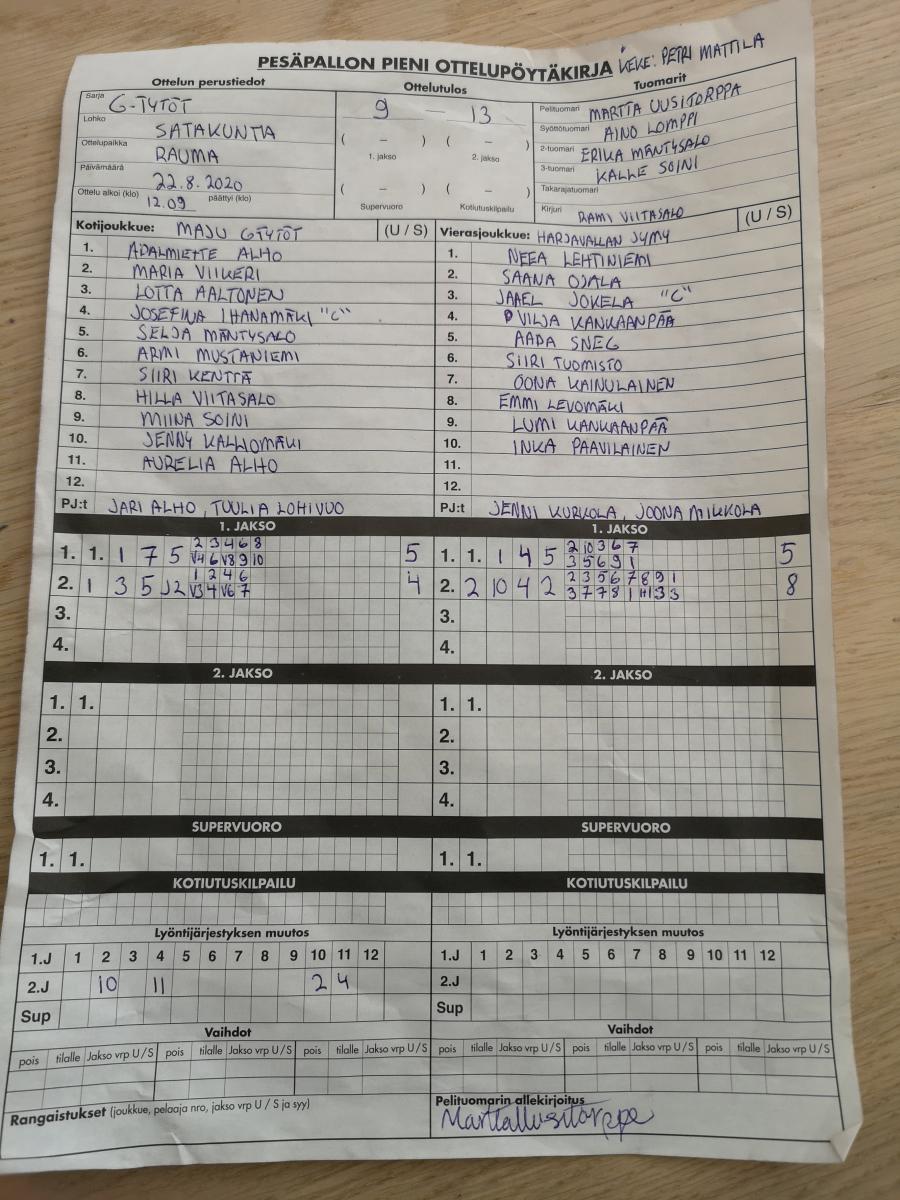 PESÄPALLON PIENI OTTELUPÖYTÄKIRJA KEKE: PETRI MATTILA
Ottelun perustiedot Ottelutulos Tuomarit
Sarja G-TYTÖT 9 — 13 Pelituomari MARTTA UUSITORPPA
Lohko SATAKUNTA ( – ) ( – ) Syöttötuomari AINO LOMPPI
Ottelupaikka RAUMA 1. jakso 2. jakso 2-tuomari ERIKA MÄNTYSALO
Päivämäärä 22.8.2020 ( – ) ( – ) 3-tuomari KALLE SOINI
Ottelu alkoi (klo) 12.09 päättyi (klo) Supervuoro Kotiutuskilpailu Takarajatuomari
Kirjuri RAMI VIITASALO
Kotijoukkue: MASU GTYTÖT (U / S) Vierasjoukkue: HARJAVALLAN JYMY (U / S)
1. ADALMIETTE ALHO 1. NEEA LEHTINIEMI
2. MARIA VIIKERI 2. SAANA OJALA
3. LOTTA AALTONEN 3. JAAEL JOKELA "C"
4. JOSEFINA IHANAMÄKI "C" 4. VILJA KANKAANPÄÄ
5. SELJA MÄNTYSALO 5. AADA SNEG
6. ARMI MUSTANIEMI 6. SIIRI TUOMISTO
7. SIIRI KENTTÄ 7. OONA KAINULAINEN
8. HILLA VIITASALO 8. EMMI LEVOMÄKI
9. MIINA SOINI 9. LUMI KANKAANPÄÄ
10. JENNY KALLIOMÄKI 10. INKA PAAVILAINEN
11. AURELIA ALHO 11.
12. 12.
PJ:t JARI ALHO, TUULIA LOHIVUO PJ:t JENNI KURKOLA, JOONA MIKKOLA
1. JAKSO 1. JAKSO
1. 1. 1 7 5 2 3 4 6 8 5 1. 1. 1 4 5 2 10 3 6 7 5
V4 6 V8 9 10 3 5 6 9 1
2. 1 3 5 J2 1 2 4 6 4 2. 2 10 4 2 2 3 5 6 7 8 9 1 8
V3 4 V6 7 3 7 7 8 1 H1 3 3
3. 3.
4. 4.
2. JAKSO 2. JAKSO
1. 1. 1. 1.
2. 2.
3. 3.
4. 4.
SUPERVUORO SUPERVUORO
1. 1. 1. 1.
KOTIUTUSKILPAILU KOTIUTUSKILPAILU
Lyöntijärjestyksen muutos Lyöntijärjestyksen muutos
1.J 1 2 3 4 5 6 7 8 9 10 11 12 1.J 1 2 3 4 5 6 7 8 9 10 11 12
2.J 10 11 2 4 2.J
Sup Sup
Vaihdot Vaihdot
pois tilalle Jakso vrp U / S pois tilalle Jakso vrp U / S pois tilalle Jakso vrp U / S pois tilalle Jakso vrp U / S pois tilalle Jakso vrp U / S pois tilalle Jakso vrp U / S
Rangaistukset (joukkue, pelaaja nro, jakso vrp U / S ja syy) Pelituomarin allekirjoitus
Martta Uusitorppa